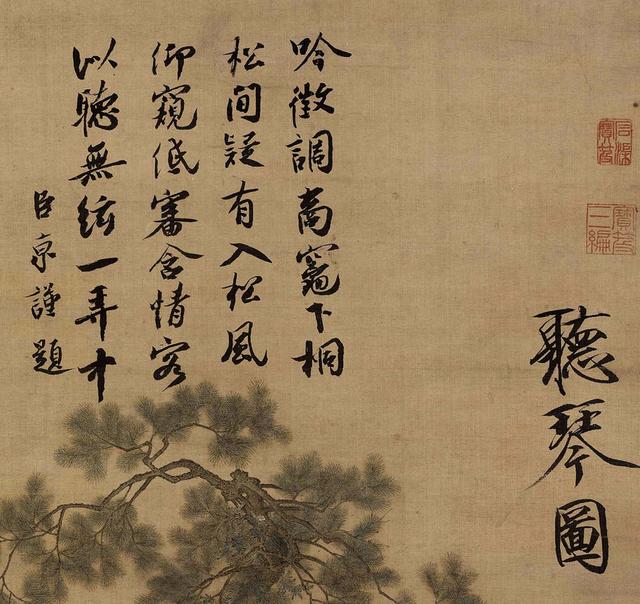 石渠
寶笈
寶笈
三編
聽琴圖
吟徵調商竈下桐
松間疑有入松風
仰窺低審含情客
似聽無絃一弄中
臣京謹題